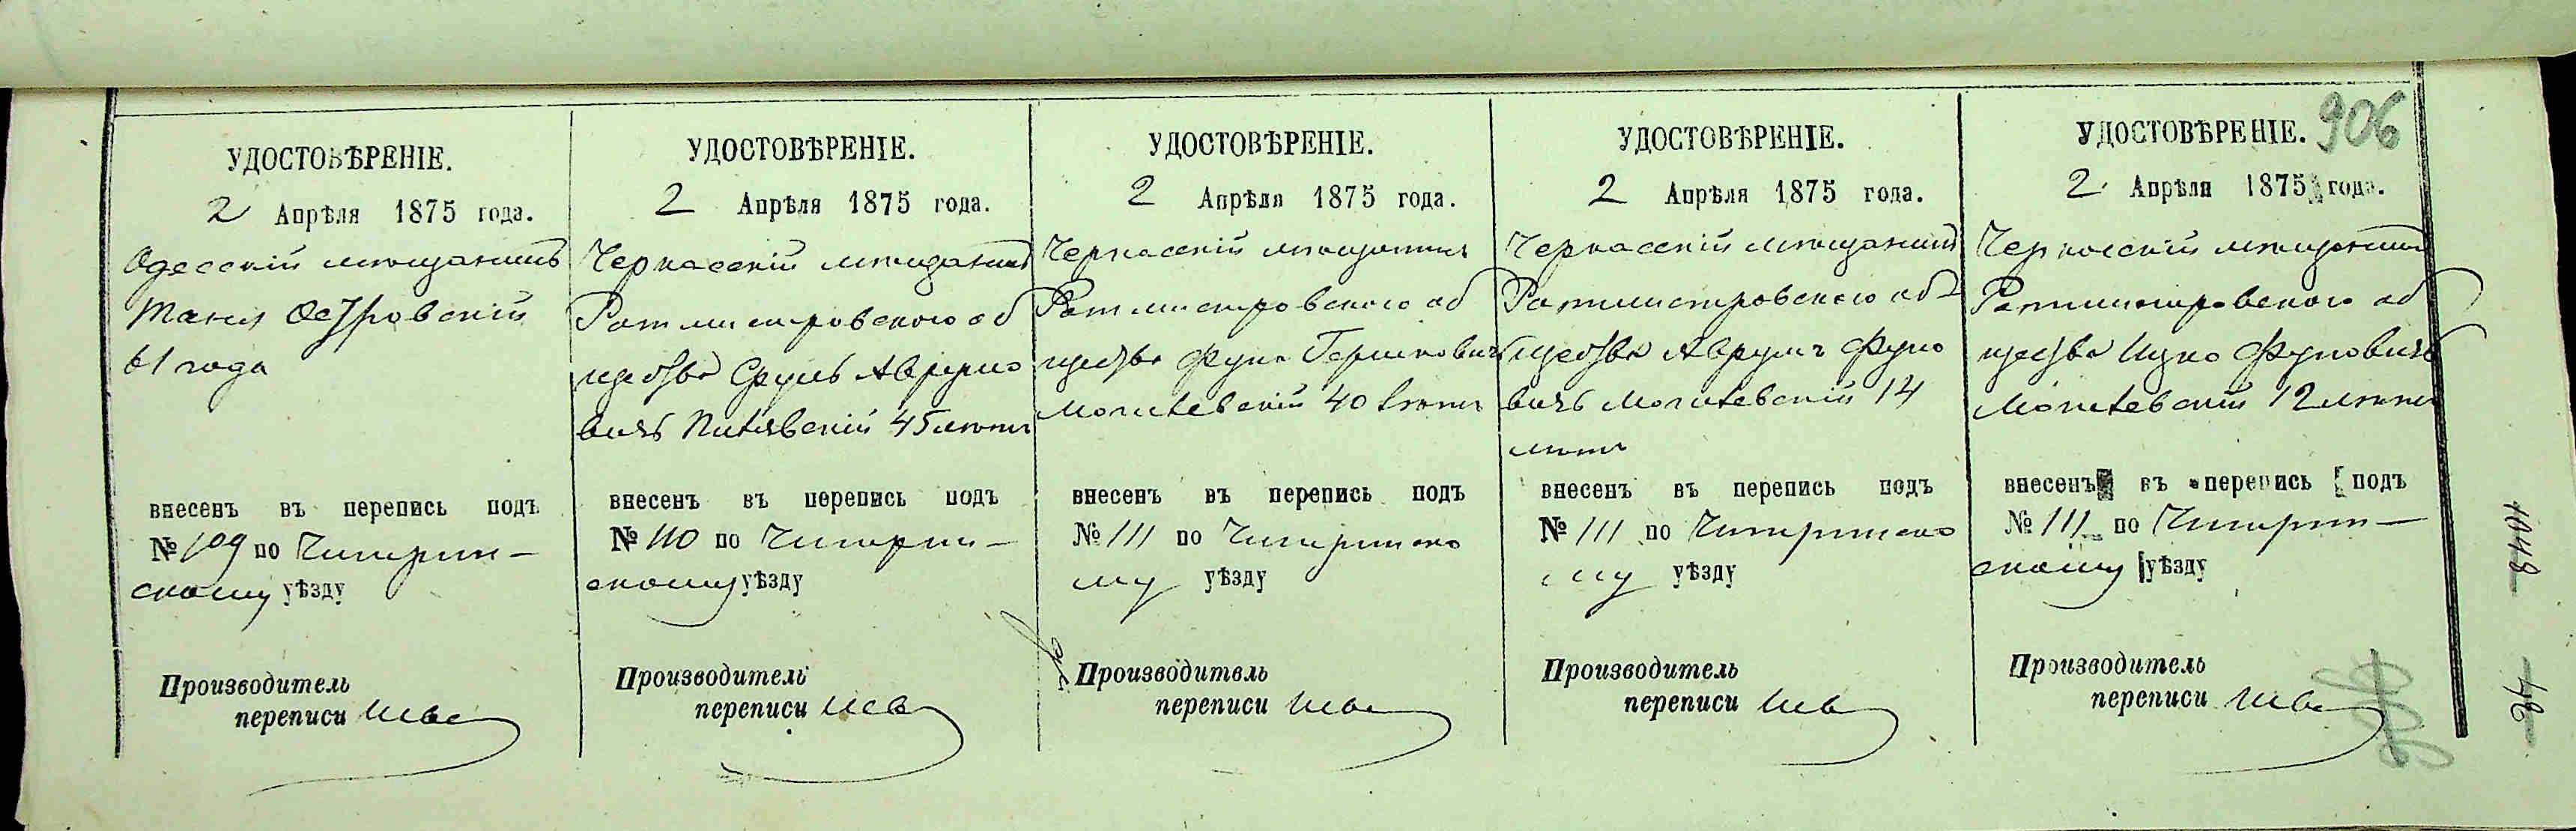 906
УДОСТОВѢРЕНІЕ.
2 Апрѣля 1875 года.
Одесскій мѣщанинъ
Островскій
61 года
внесенъ въ перепись подъ
№ 109 по Чигирин-
скому уѣзду
Производитель
переписи
УДОСТОВѢРЕНІЕ.
2 Апрѣля 1875 года.
Черкасскій мѣщанинъ
Ротмистровского об
щества Сруль Аврумо
вичъ 45 лѣтъ
внесенъ въ перепись подъ
№ 110 по Чигирин-
скому уѣзду
Производитель
переписи
УДОСТОВѢРЕНІЕ.
2 Апрѣля 1875 года.
Черкасскій мѣщанинъ
Ротмистровского об
щества Фука Гершковичъ
Могилевскій 40 лѣтъ
внесенъ въ перепись подъ
№ 111 по Чигиринско
му уѣзду
Производитель
переписи
УДОСТОВѢРЕНІЕ.
2 Апрѣля 1875 года.
Черкасскій мѣщанинъ
Ротмистровского об-
щества Аврумъ Фуко
вичъ Могилевскій 14
лѣтъ
внесенъ въ перепись подъ
№ 111 по Чигиринско
му уѣзду
Производитель
переписи
УДОСТОВѢРЕНІЕ.
2 Апрѣля 1875 года.
Черкасскій мѣщанинъ
Ротмистровского об
щества Ицко Фуковичъ
Могилевскій 12 лѣтъ
внесенъ въ перепись подъ
№ 111 по Чигирин-
скому уѣзду
Производитель
переписи